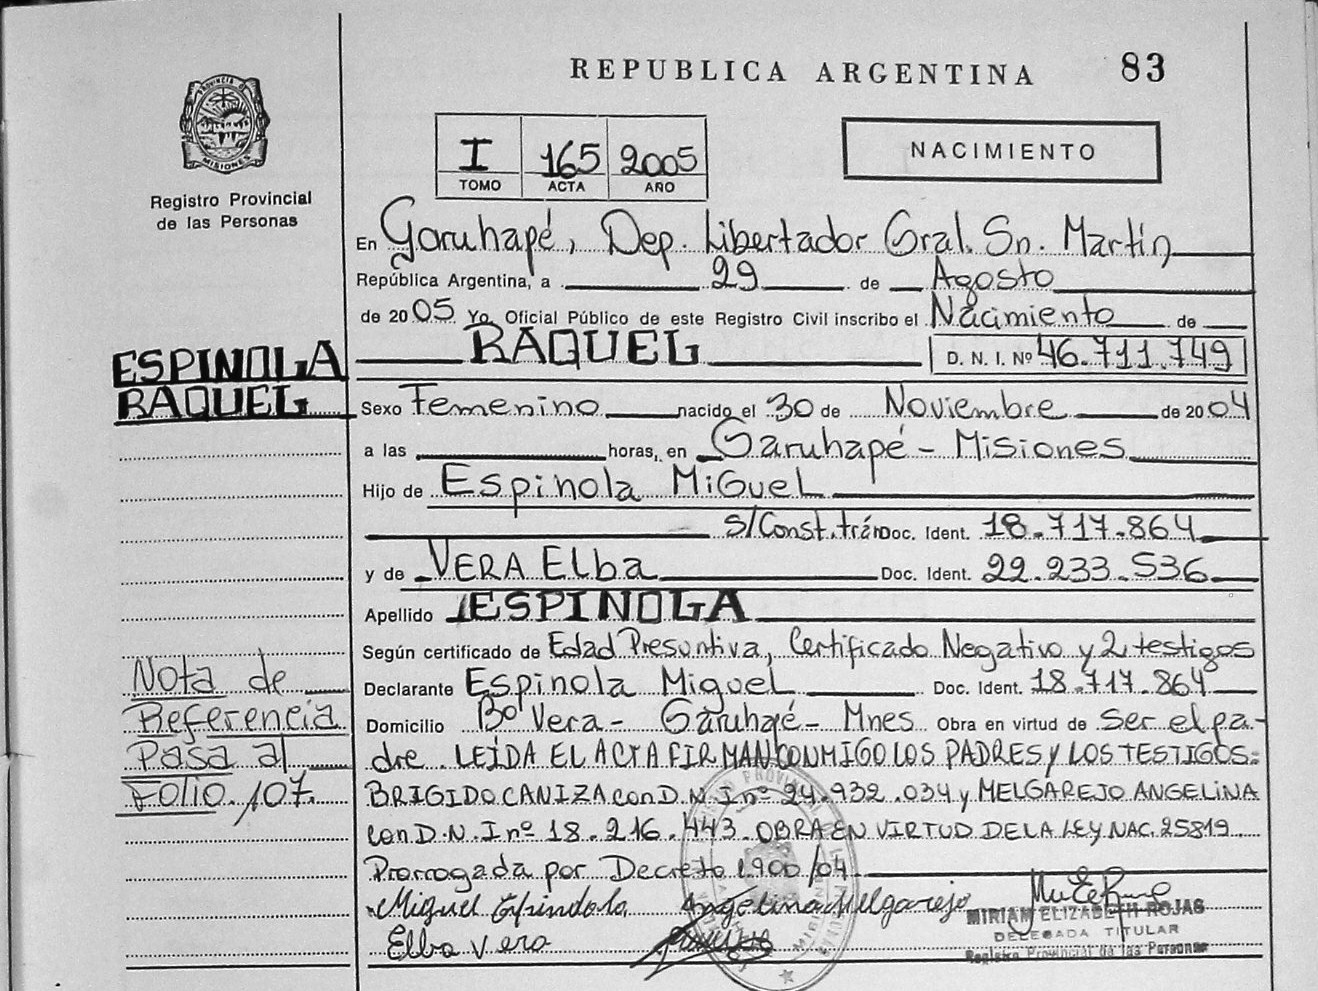 REPUBLICA ARGENTINA 83
PROVINCIA DE MISIONES
Registro Provincial
de las Personas
I 165 2005
TOMO ACTA AÑO
NACIMIENTO
En Garuhapé, Dep. Libertador Gral. Sn. Martín
República Argentina, a 29 de Agosto
de 2005 Yo, Oficial Público de este Registro Civil inscribo el Nacimiento de
RAQUEL D. N. I. Nº 46.711.749
ESPINOLA
RAQUEL
Sexo Femenino nacido el 30 de Noviembre de 2004
a las horas, en Garuhapé - Misiones
Hijo de Espinola MiGueL
s/Const.trám Doc. Ident. 18.717.864
y de VERA Elba Doc. Ident. 22.233.536
Apellido ESPINOLA
Según certificado de Edad Presuntiva, Certificado Negativo y 2 testigos
Nota de
Referencia
Pasa al
Folio 107.
Declarante Espinola Miguel Doc. Ident. 18.717.864
Domicilio Bº Vera - Garuhapé - Mnes Obra en virtud de ser el pa-
dre LEIDA EL ACTA FIRMAN CONMIGO LOS PADRES y LOS TESTIGOS:
BRIGIDO CANIZA con D.N.I nº 24.932.034 y MELGAREJO ANGELINA
con D.N.I nº 18.216.443. OBRA EN VIRTUD DE LA LEY NAC. 25819
Prorrogada por Decreto 1.900/04
Miguel Espindola Angelina Melgarejo
Elba Vera
MIRIAM ELIZABETH ROJAS
DELEGADA TITULAR
Registro Provincial de las Personas